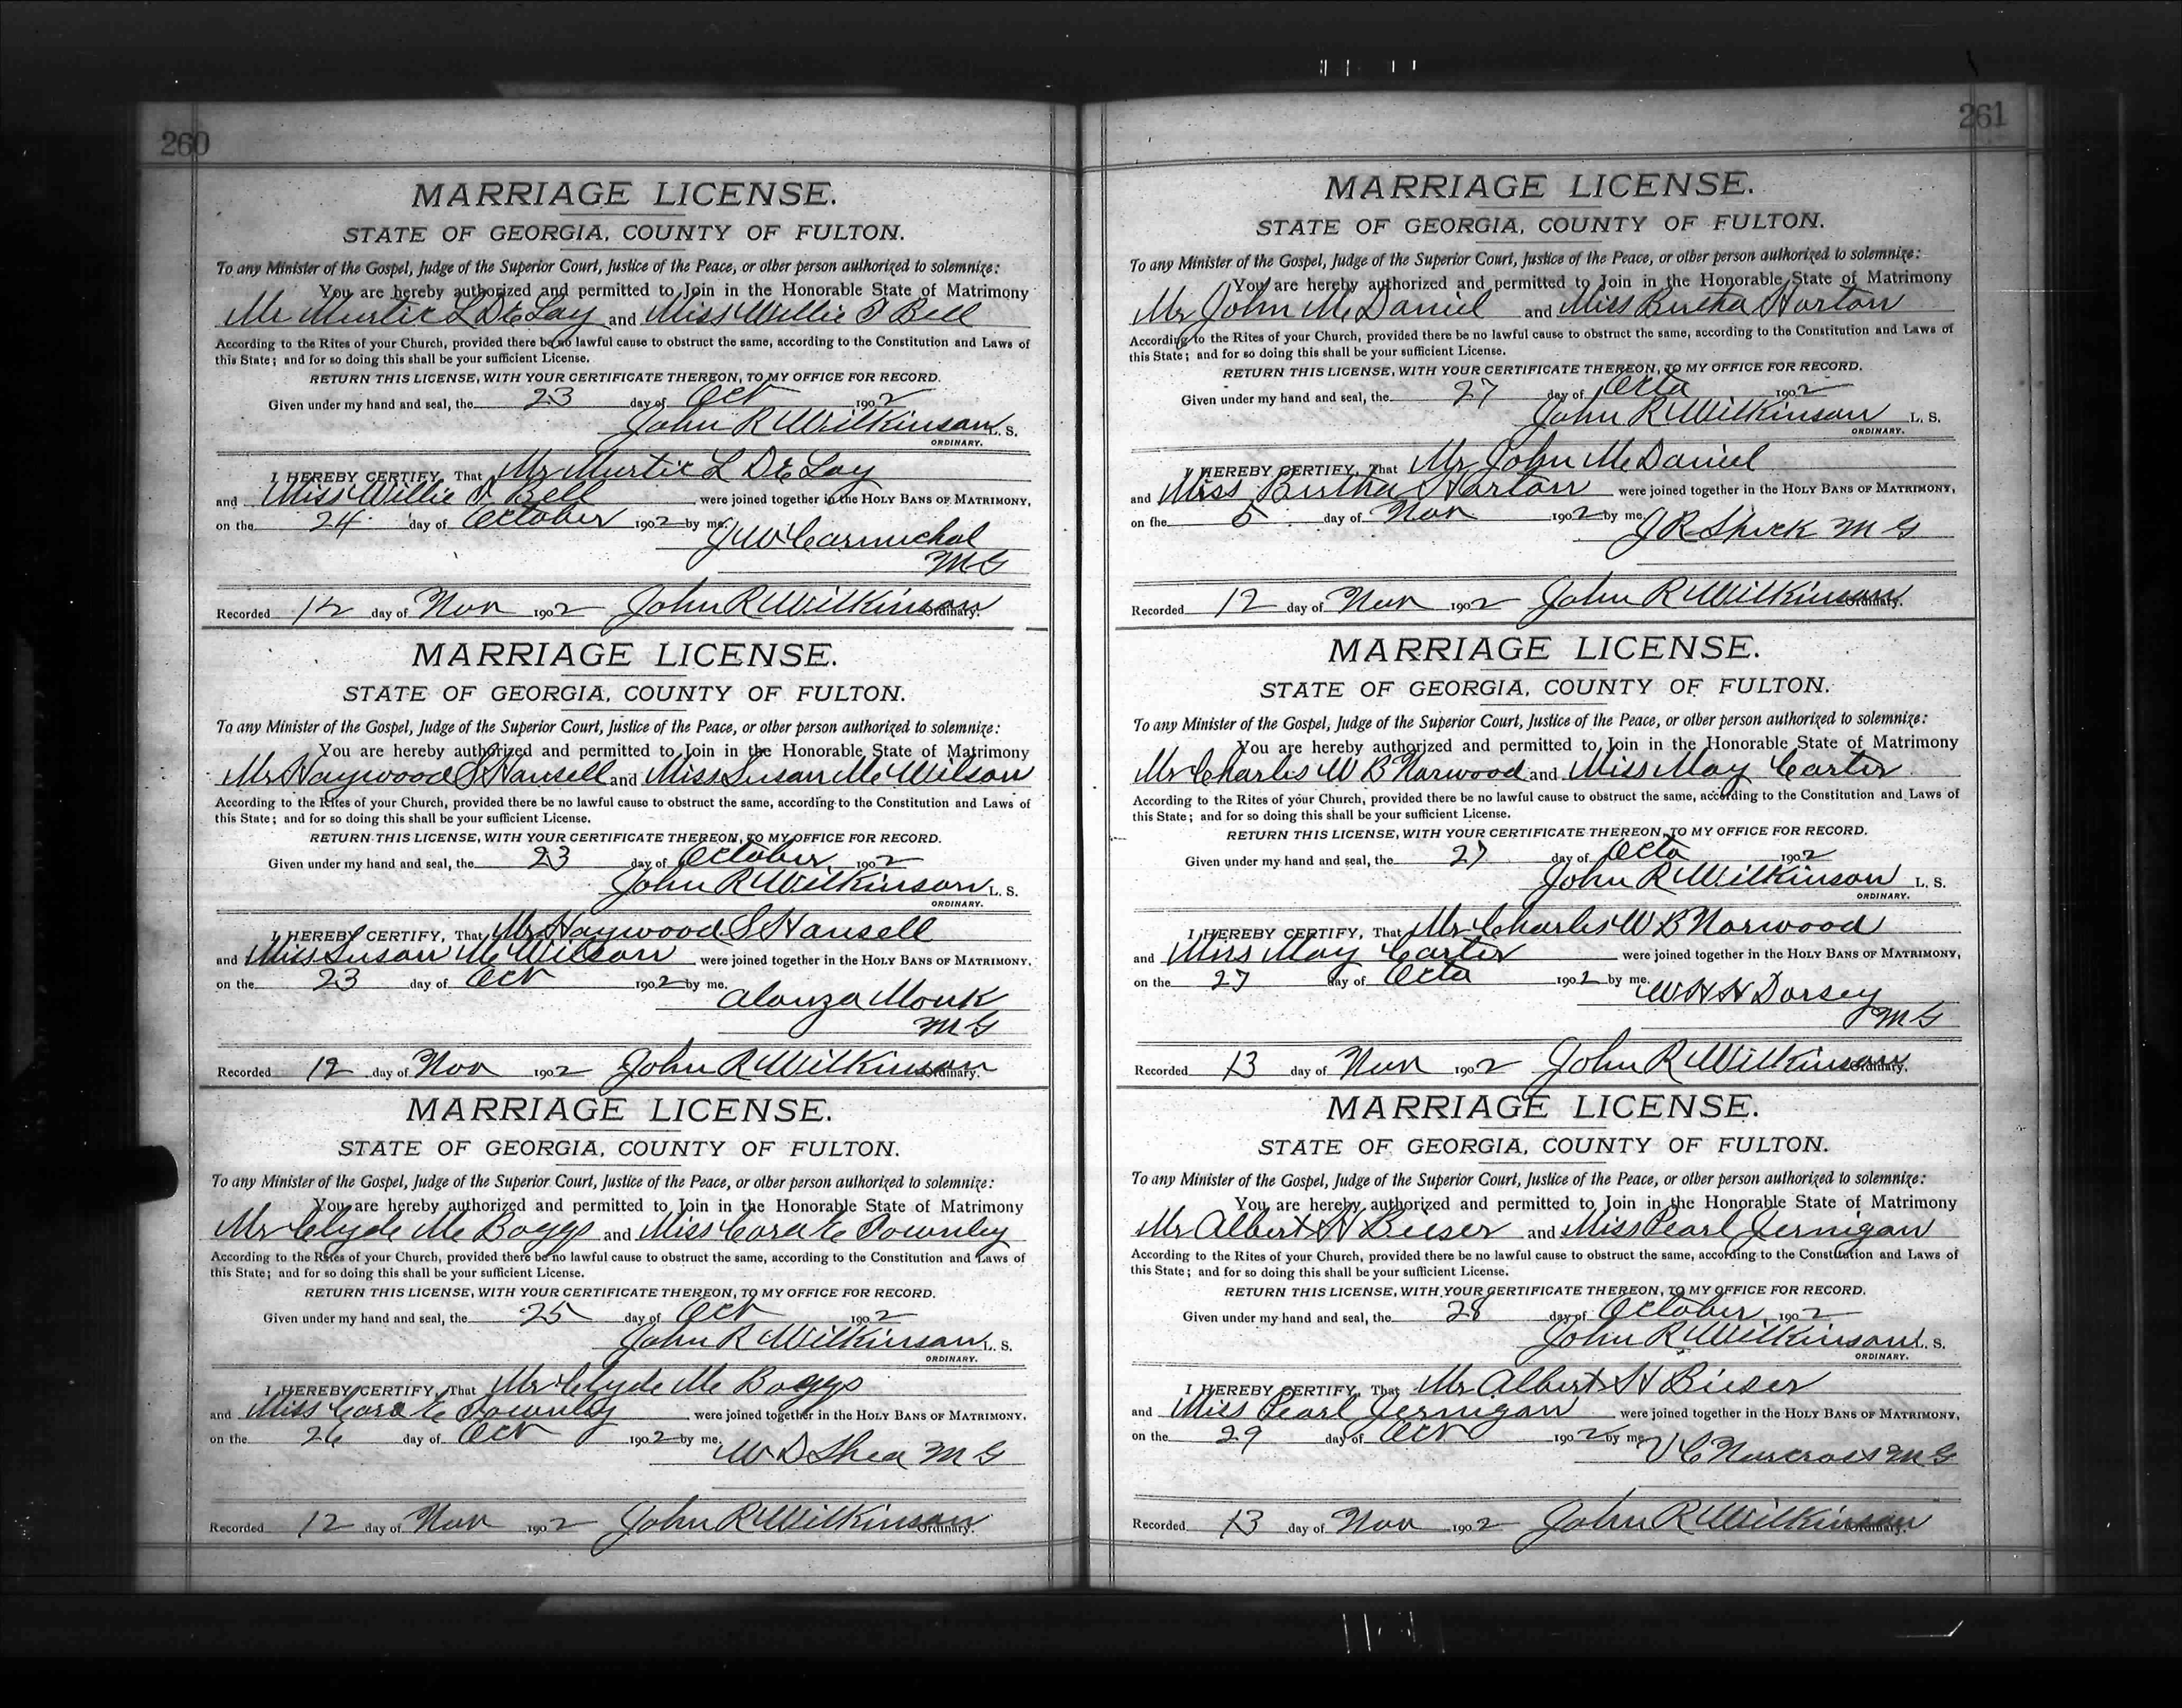 260
MARRIAGE LICENSE.
STATE OF GEORGIA, COUNTY OF FULTON.
To any Minister of the Gospel, Judge of the Superior Court, Justice of the Peace, or other person authorized to solemnize:
You are hereby authorized and permitted to Join in the Honorable State of Matrimony
Mr Murtic L DeLay and Miss Willie T Bell
According to the Rites of your Church, provided there be no lawful cause to obstruct the same, according to the Constitution and Laws of
this State; and for so doing this shall be your sufficient License.
RETURN THIS LICENSE, WITH YOUR CERTIFICATE THEREON, TO MY OFFICE FOR RECORD.
Given under my hand and seal, the 23 day of Oct 1902
John R Wilkinson L. S.
ORDINARY.
I HEREBY CERTIFY, That Mr Murtic L DeLay
and Miss Willie T Bell were joined together in the HOLY BANS OF MATRIMONY,
on the 24 day of October 1902 by me.
J W Carmichal
M G
Recorded 12 day of Nov 1902 John R Wilkinson Ordinary.
MARRIAGE LICENSE.
STATE OF GEORGIA, COUNTY OF FULTON.
To any Minister of the Gospel, Judge of the Superior Court, Justice of the Peace, or other person authorized to solemnize:
You are hereby authorized and permitted to Join in the Honorable State of Matrimony
Mr Haywood S Hansell and Miss Susan Mc Wilson
According to the Rites of your Church, provided there be no lawful cause to obstruct the same, according to the Constitution and Laws of
this State; and for so doing this shall be your sufficient License.
RETURN THIS LICENSE, WITH YOUR CERTIFICATE THEREON, TO MY OFFICE FOR RECORD.
Given under my hand and seal, the 23 day of October 1902
John R Wilkinson L. S.
ORDINARY.
I HEREBY CERTIFY, That Mr Haywood S Hansell
and Miss Susan Mc Wilson were joined together in the HOLY BANS OF MATRIMONY,
on the 23 day of Oct 1902 by me.
Alonza Monk
M G
Recorded 12 day of Nov 1902 John R Wilkinson Ordinary.
MARRIAGE LICENSE.
STATE OF GEORGIA, COUNTY OF FULTON.
To any Minister of the Gospel, Judge of the Superior Court, Justice of the Peace, or other person authorized to solemnize:
You are hereby authorized and permitted to Join in the Honorable State of Matrimony
Mr Clyde Mc Boggs and Miss Cora E Townley
According to the Rites of your Church, provided there be no lawful cause to obstruct the same, according to the Constitution and Laws of
this State; and for so doing this shall be your sufficient License.
RETURN THIS LICENSE, WITH YOUR CERTIFICATE THEREON, TO MY OFFICE FOR RECORD.
Given under my hand and seal, the 25 day of Oct 1902
John R Wilkinson L. S.
ORDINARY.
I HEREBY CERTIFY, That Mr Clyde Mc Boggs
and Miss Cora E Townley were joined together in the HOLY BANS OF MATRIMONY,
on the 26 day of Oct 1902 by me.
W D Shea M G
Recorded 12 day of Nov 1902 John R Wilkinson Ordinary.
261
MARRIAGE LICENSE.
STATE OF GEORGIA, COUNTY OF FULTON.
To any Minister of the Gospel, Judge of the Superior Court, Justice of the Peace, or other person authorized to solemnize:
You are hereby authorized and permitted to Join in the Honorable State of Matrimony
Mr John McDaniel and Miss Birtha Horton
According to the Rites of your Church, provided there be no lawful cause to obstruct the same, according to the Constitution and Laws of
this State; and for so doing this shall be your sufficient License.
RETURN THIS LICENSE, WITH YOUR CERTIFICATE THEREON, TO MY OFFICE FOR RECORD.
Given under my hand and seal, the 27 day of Octo 1902
John R Wilkinson L. S.
ORDINARY.
I HEREBY CERTIFY, That Mr John McDaniel
and Miss Birtha Horton were joined together in the HOLY BANS OF MATRIMONY,
on the 5 day of Nov 1902 by me.
J R Speck M G
Recorded 12 day of Nov 1902 John R Wilkinson Ordinary.
MARRIAGE LICENSE.
STATE OF GEORGIA, COUNTY OF FULTON.
To any Minister of the Gospel, Judge of the Superior Court, Justice of the Peace, or other person authorized to solemnize:
You are hereby authorized and permitted to Join in the Honorable State of Matrimony
Mr Charles W B Norwood and Miss May Carter
According to the Rites of your Church, provided there be no lawful cause to obstruct the same, according to the Constitution and Laws of
this State; and for so doing this shall be your sufficient License.
RETURN THIS LICENSE, WITH YOUR CERTIFICATE THEREON, TO MY OFFICE FOR RECORD.
Given under my hand and seal, the 27 day of Octo 1902
John R Wilkinson L. S.
ORDINARY.
I HEREBY CERTIFY, That Mr Charles W B Norwood
and Miss May Carter were joined together in the HOLY BANS OF MATRIMONY,
on the 27 day of Octo 1902 by me.
W H H Dorsey
M G
Recorded 13 day of Nov 1902 John R Wilkinson Ordinary.
MARRIAGE LICENSE.
STATE OF GEORGIA, COUNTY OF FULTON.
To any Minister of the Gospel, Judge of the Superior Court, Justice of the Peace, or other person authorized to solemnize:
You are hereby authorized and permitted to Join in the Honorable State of Matrimony
Mr Albert H Bieser and Miss Pearl Jernigan
According to the Rites of your Church, provided there be no lawful cause to obstruct the same, according to the Constitution and Laws of
this State; and for so doing this shall be your sufficient License.
RETURN THIS LICENSE, WITH YOUR CERTIFICATE THEREON, TO MY OFFICE FOR RECORD.
Given under my hand and seal, the 28 day of October 1902
John R Wilkinson L. S.
ORDINARY.
I HEREBY CERTIFY, That Mr Albert H Bieser
and Miss Pearl Jernigan were joined together in the HOLY BANS OF MATRIMONY,
on the 29 day of Oct 1902 by me.
V C Norcross M G
Recorded 13 day of Nov 1902 John R Wilkinson Ordinary.